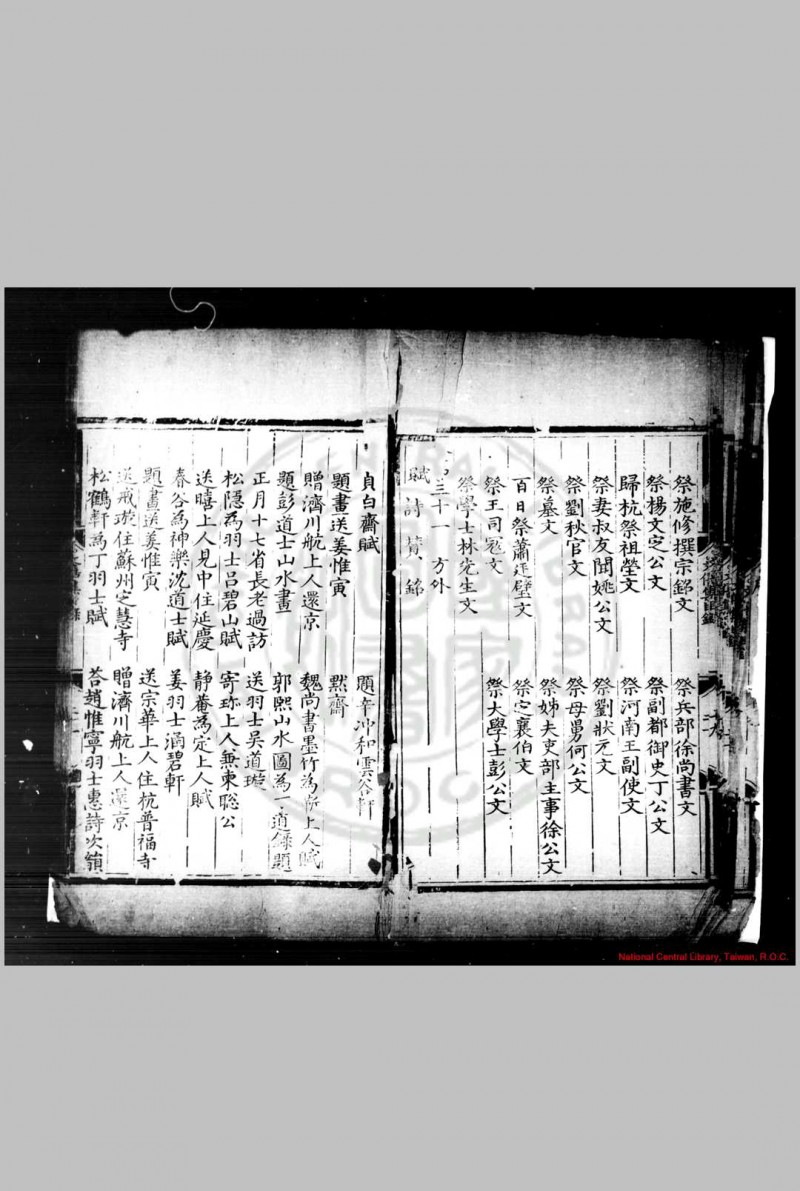 祭施修撰宗銘文　祭兵部徐尚書文
祭楊文定公文　祭副都御史丁公文
歸杭祭祖塋文　祭河南王副使文
祭妻叔友聞姚公文　祭劉狀元文
祭劉秋官文　祭母舅何公文
祭墓文　祭姊夫吏部主事徐公文
百日祭蕭廷璧文　祭定襄伯文
祭王司寇文　祭大學士彭公文
祭學士林先生文
三十一　方外
賦　詩　贊　銘
貞白齋賦　題辛沖和雲谷軒
題畫送姜惟寅　默齋
贈濟川航上人還京　魏尚書墨竹為上人賦
題彭道士山水畫　郭熙山水圖為一道錄題
正月十七省長老過訪　送羽士吳道璇
松隱為羽士呂碧山賦　寄珎上人兼柬聡公
送暿上人見中住延慶　静菴為定上人賦
春谷為神樂沈道士賦　姜羽士涵碧軒
題畫送姜惟寅　送宗華上人住杭普福寺
送戒璇住蘇州定慧寺　贈濟川航上人還京
松鶴軒為丁羽士賦　荅趙惟寧羽士惠詩次韻
National Central Library, Taiwan, R.O.C.